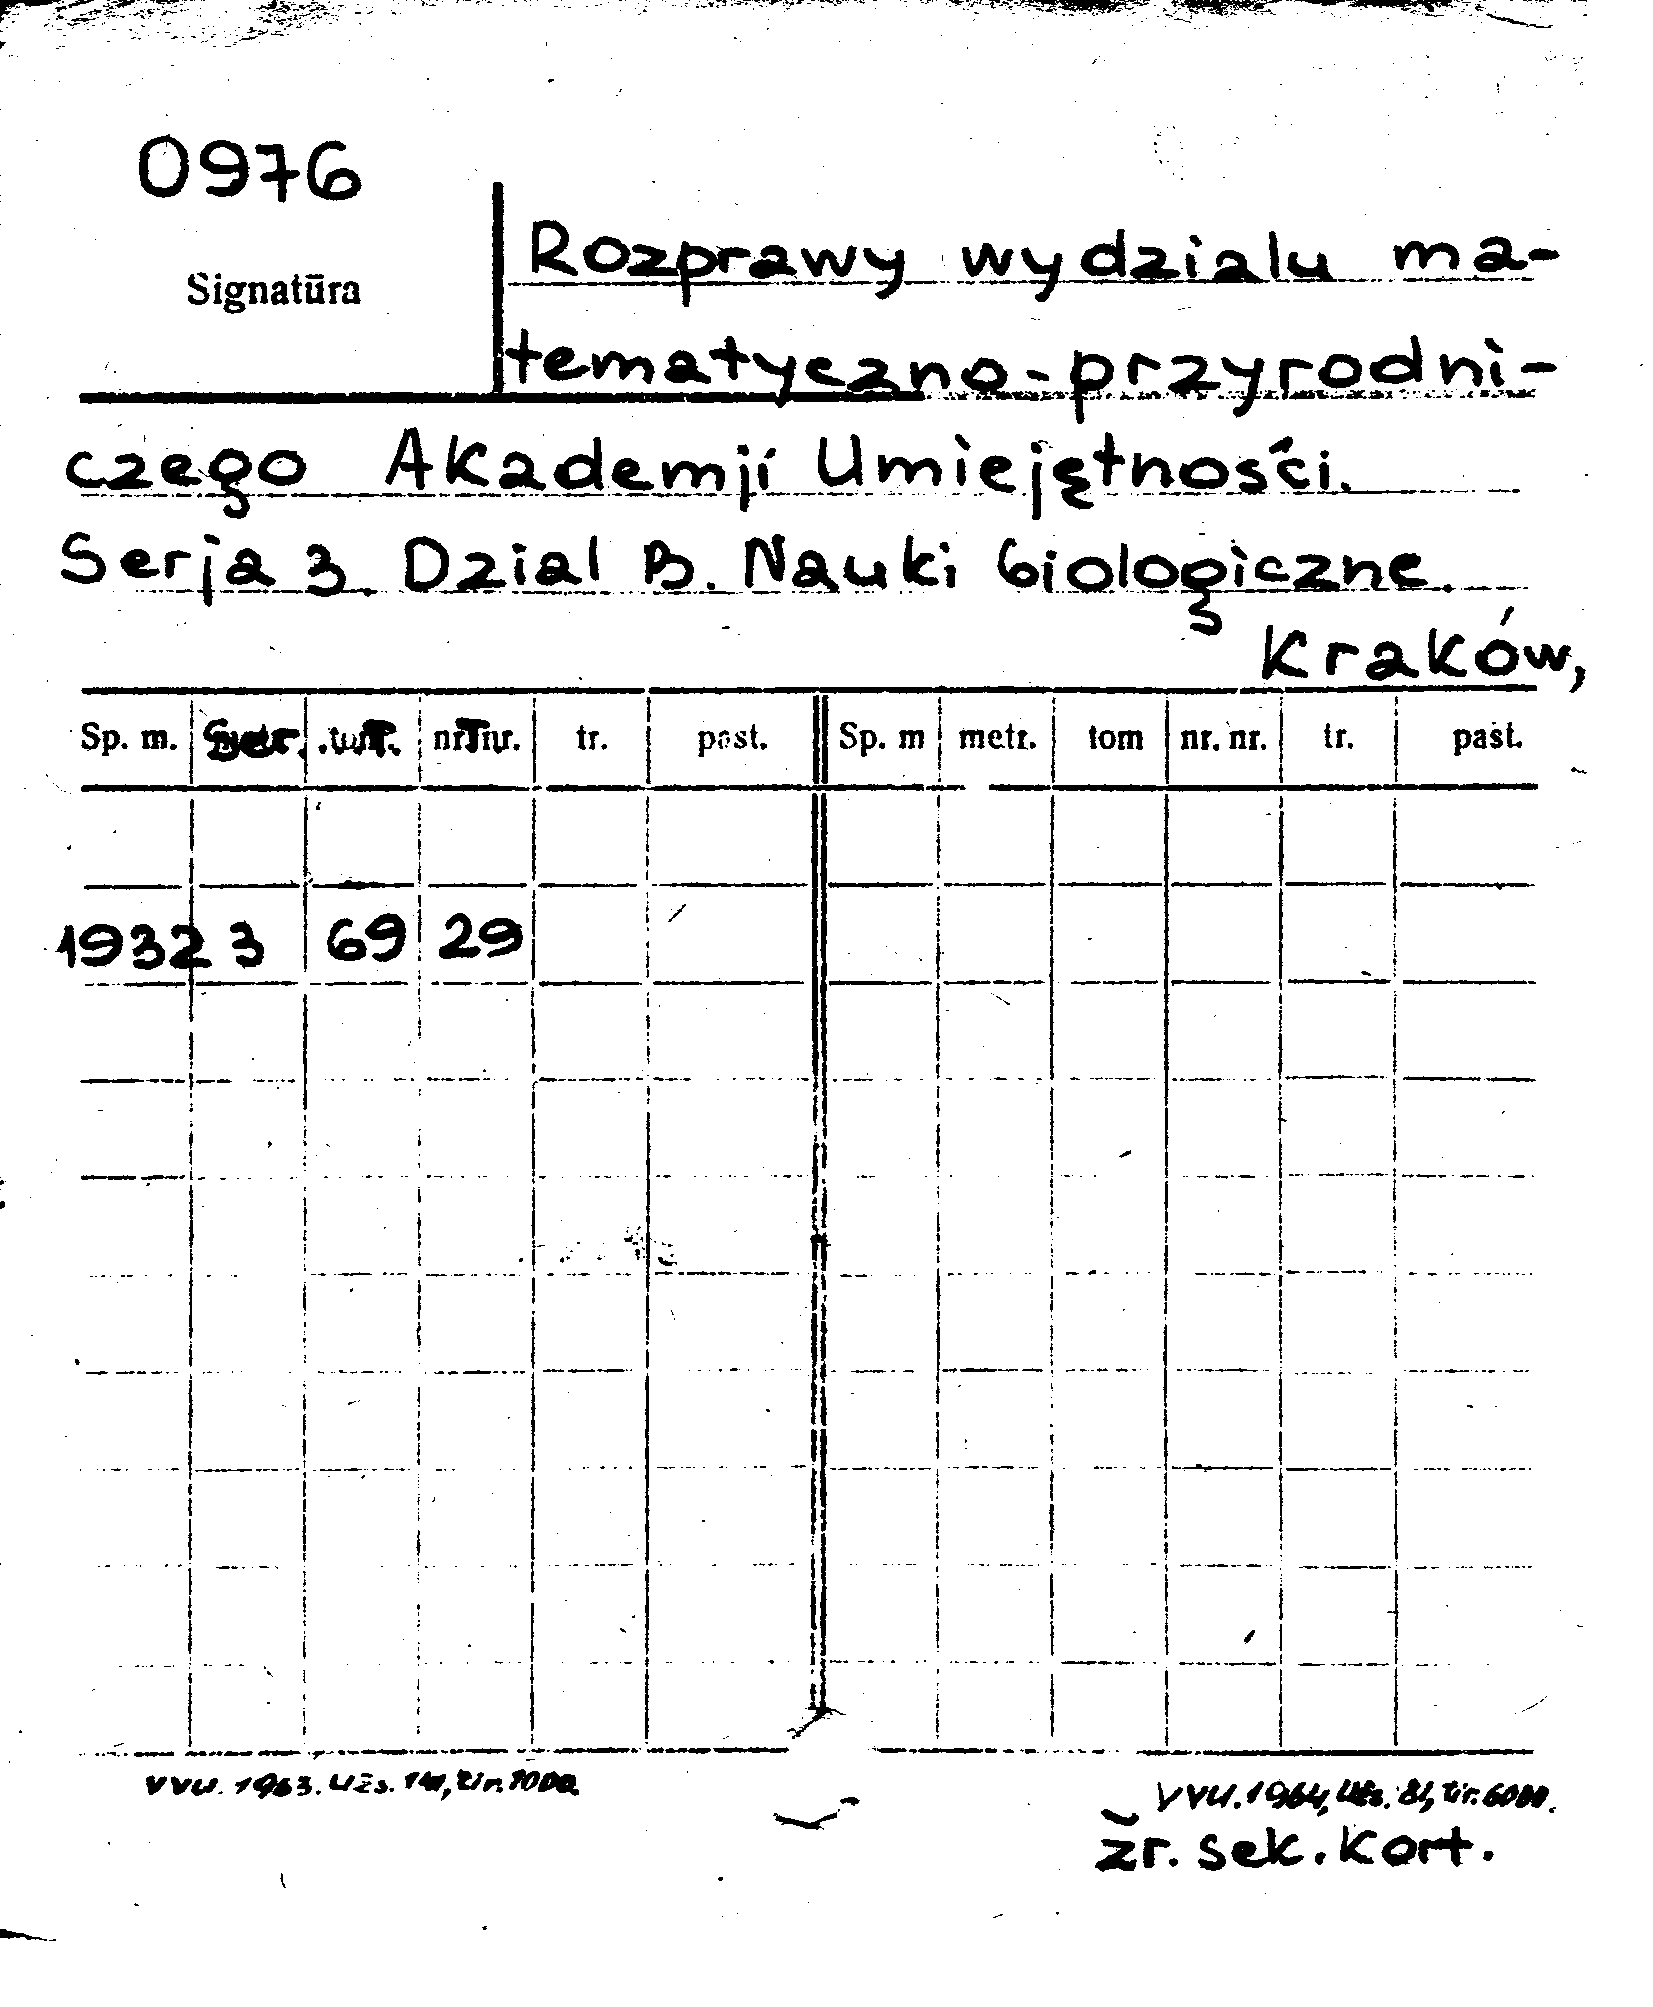 0976
Signatūra
Rozprawy wydzialu ma-
tematyczno-przyrodni-
czego Akademji Umiejętności.
Serja 3. Dzial B. Nauki biologiczne.
Kraków,
Sp. m. nr. nr. tr. past. Sp. m metr. tom nr. nr. tr. past.
1932 3 69 29
VVU. 1963. Užs. tir. 1000. VVU. 1964, Užs. 81, tir. 6000.
žr. sek. kort.